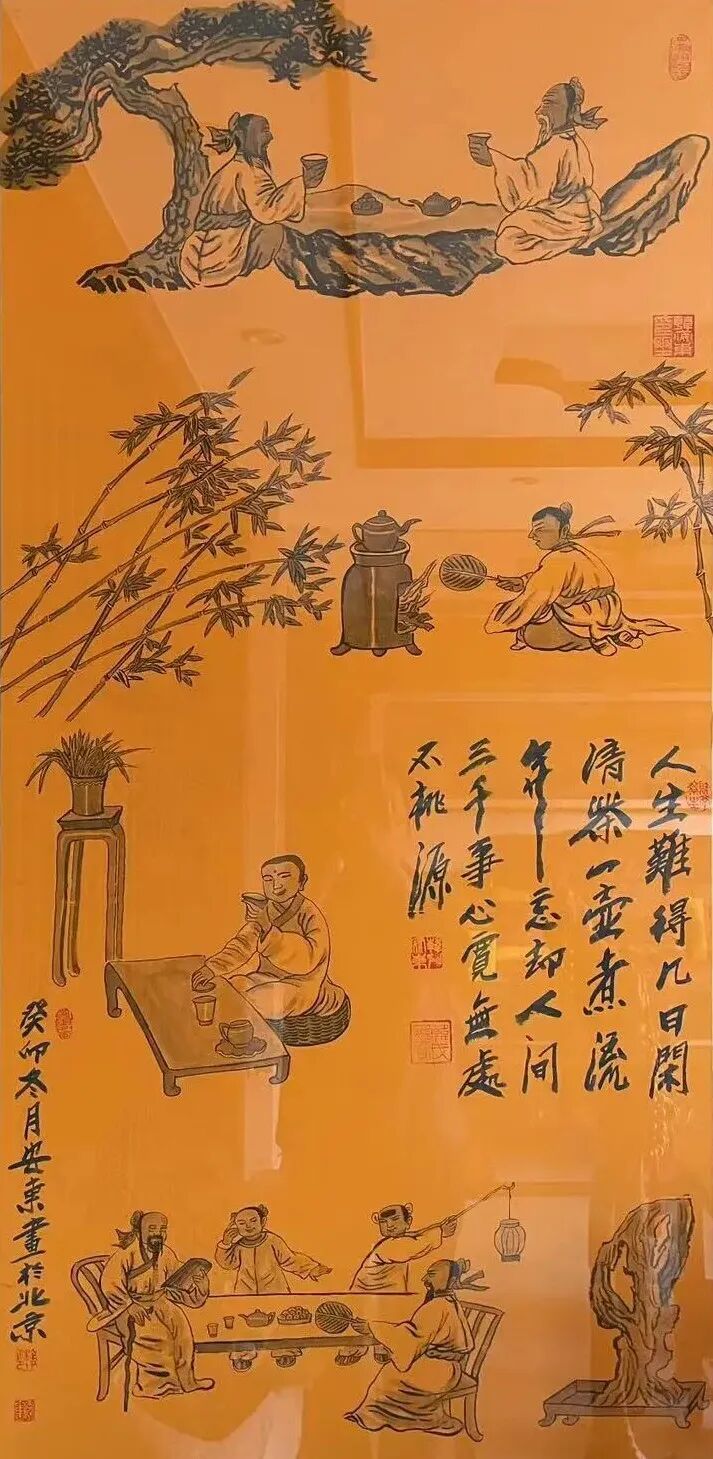 人生難得几日閑
清柴一壶煮流
年
忘却人间
三千事心寬無處
不桃源
癸卯冬月安東畫於北京